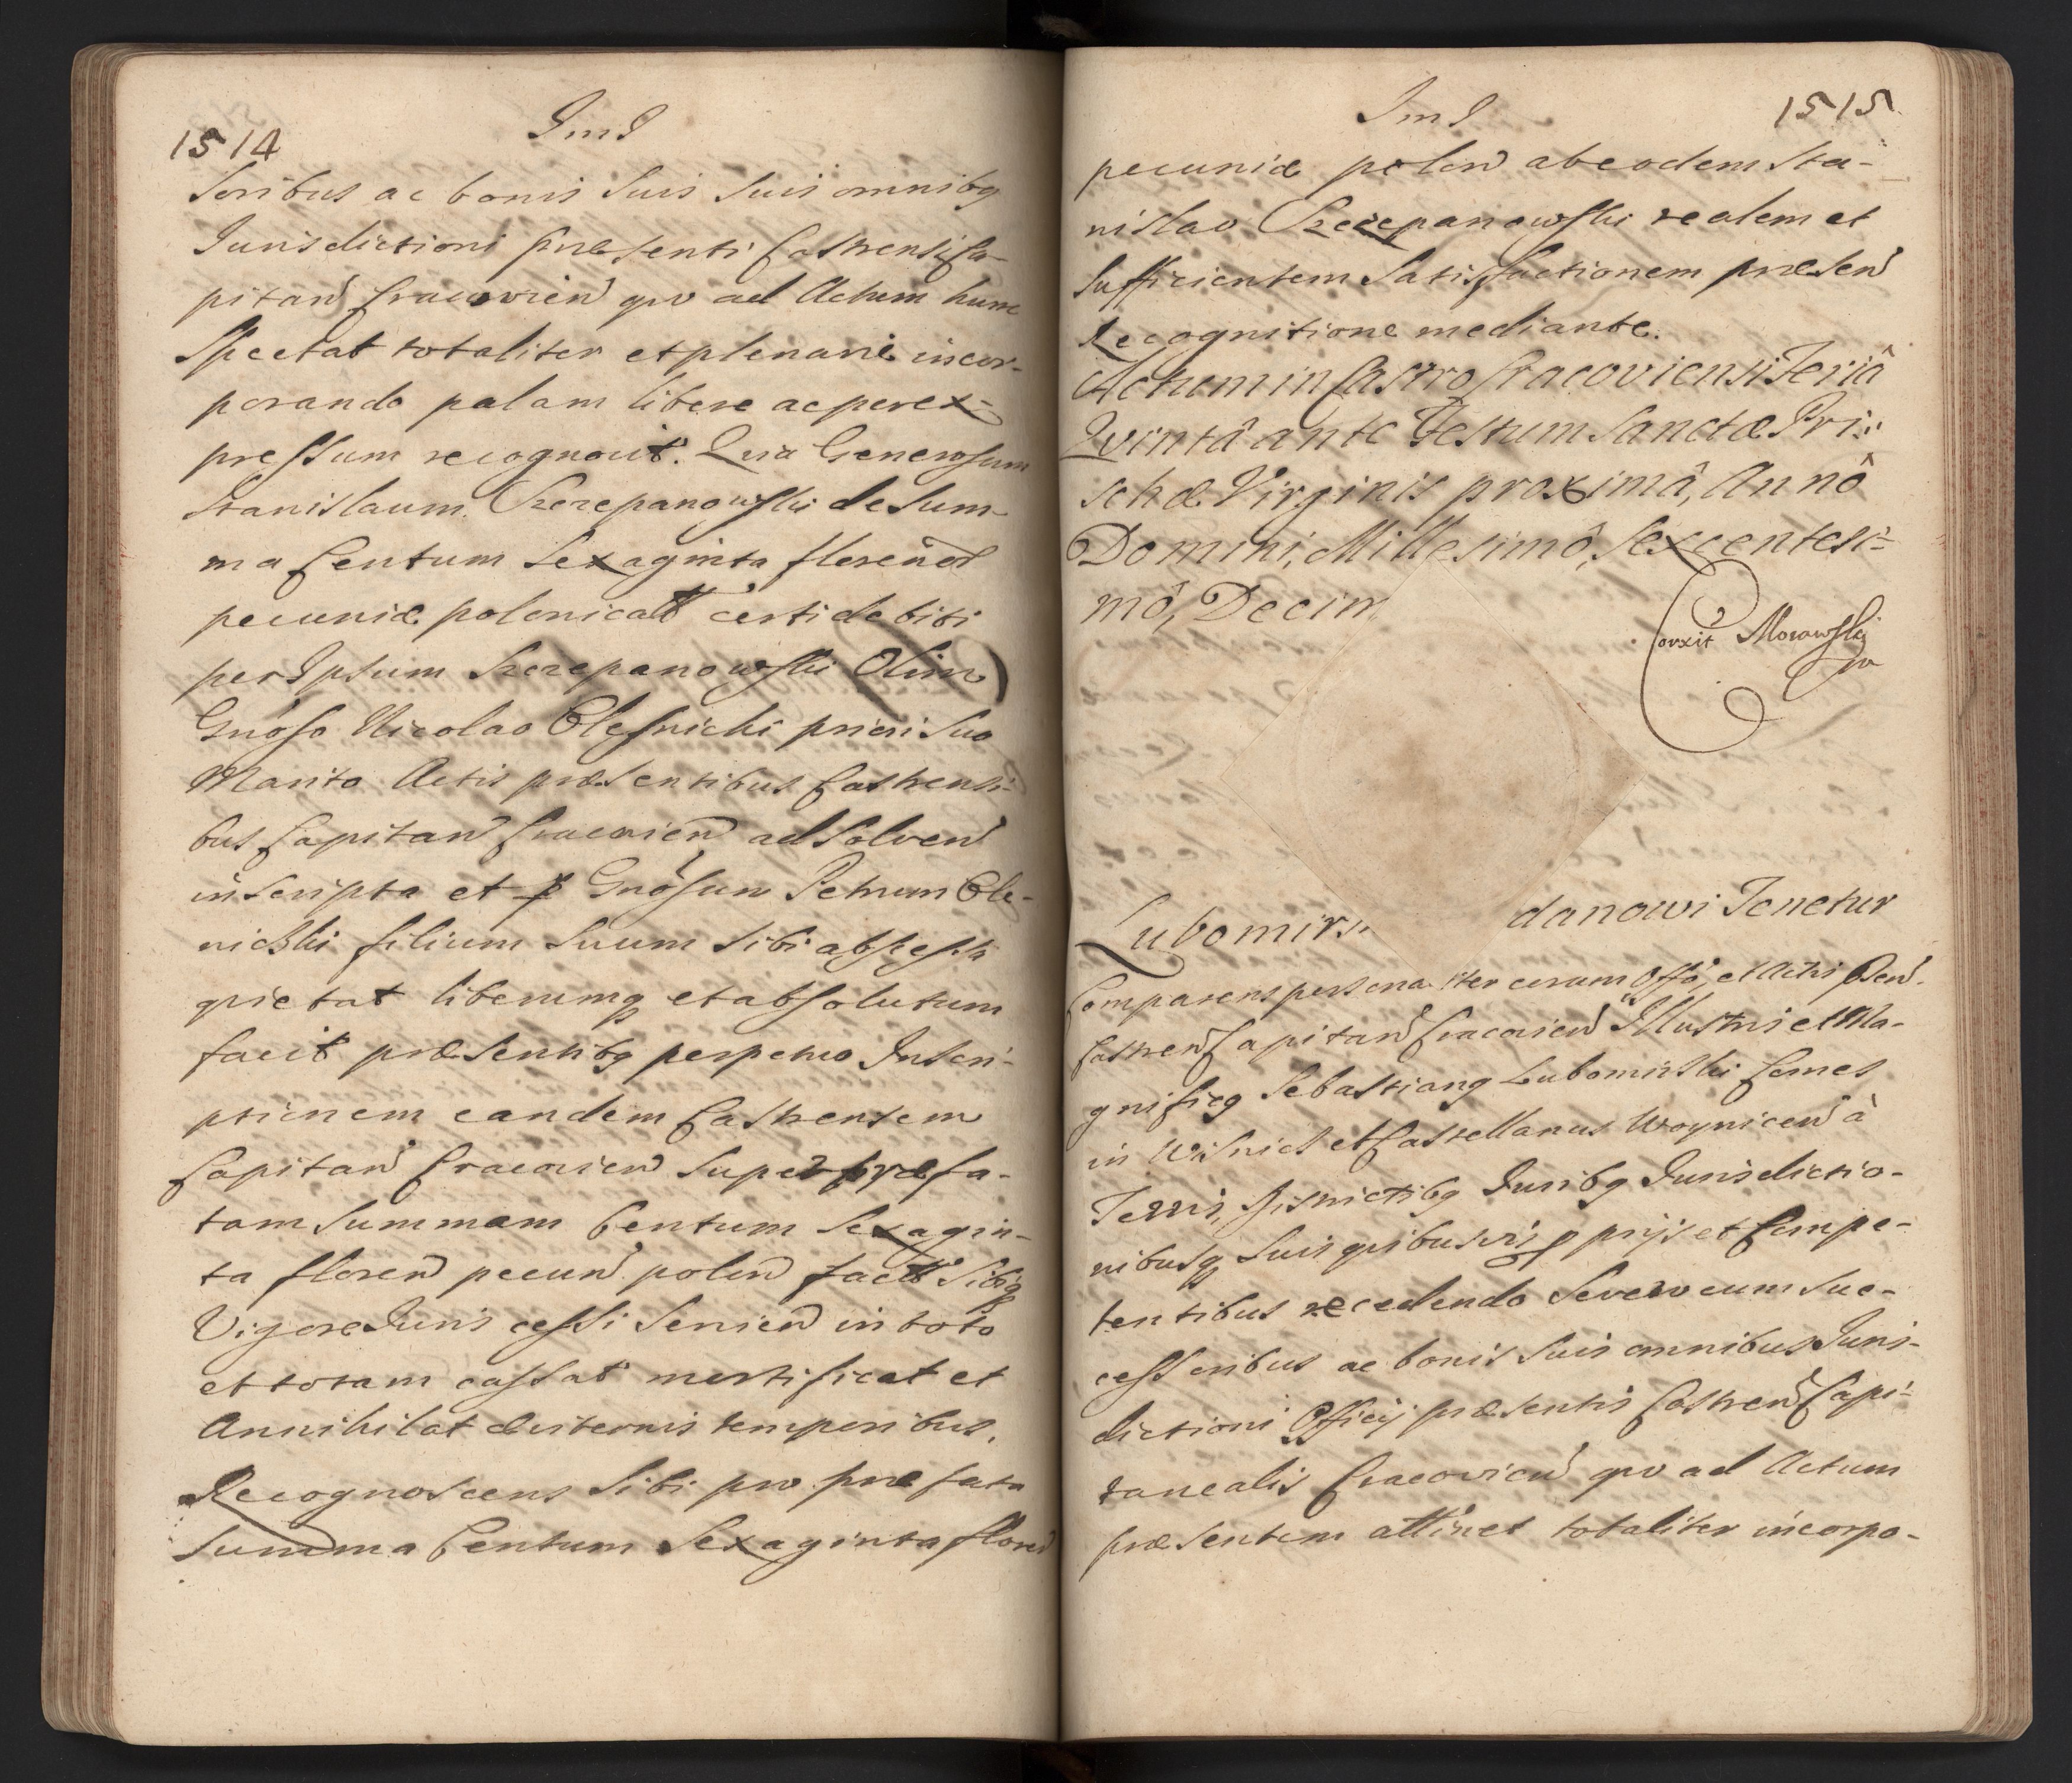 1514
Im I
soribus ac bonis suis suis omnibq
Jurisdictioni præsenti Castrensi Ca-
pitan Cracovien quo ad Actum hunc
spectat totaliter et plenarie incor-
porando palam libere ac per ex-
pressum recognovit. Quia Generosum
Stanislaum Szczepanowski de sum-
ma Centum sexaginta florenor
pecuniæ polonicalt certi debiti
per Ipsum Szczepanowski Olim
Gnoso Nicolao Olesnicki priori suo
Marito Actis præsentibus Castrensi-
bus Capitan Cracovien ad solven
inscripta et p Gnosum Petrum Ole-
nicski filium suum sibi ab
quietat liberumq et absolutum
facit præsentibq perpetuo Inscri-
ptionem eandem Castrensem
Capitan Cracovien super præfa-
tam summam Centum Sexagin-
ta floren pecun polon fact sibiq
Vigore Juris cessi servien in toto
et totam cassat mortificat et
Annihilat æviternis temporibus.
Recognoscens sibi pro præfata
summa Centum Sexaginta floren
Im I
1515
pecuniæ polon ab eodem Sta-
nislao Szczepanowski realem et
sufficientem satisfactionem præsen
Recognitione mediante.
Actum in Castro Cracoviensi Feriâ
Quintâ ante Festum Sanctæ Pri-
schæ Virginis proximâ, Annô
Domini, Millesimô, Sexcentesi-
mô, Decim
Corxit Morawski
Lubomirs danowi Tenetur
Comparens personaliter coram Offo, et Actis Psen.
Castren Capitan Cracovien Illustris et Ma-
gnificq Sebastianq Lubomirski Comes
in Wisnicz et Castellanus Woynicen à
Terris, Districtibq Juribq Jurisdictio-
nibusq suis quibusvis pprijs et Compe-
tentibus recedendo Seve cum suc-
cessoribus ac bonis suis omnibus Juris-
dictioni Officij præsentis Castren Capi-
tanealis Cracovien quo ad Actum
præsentem attinet totaliter incorpo-